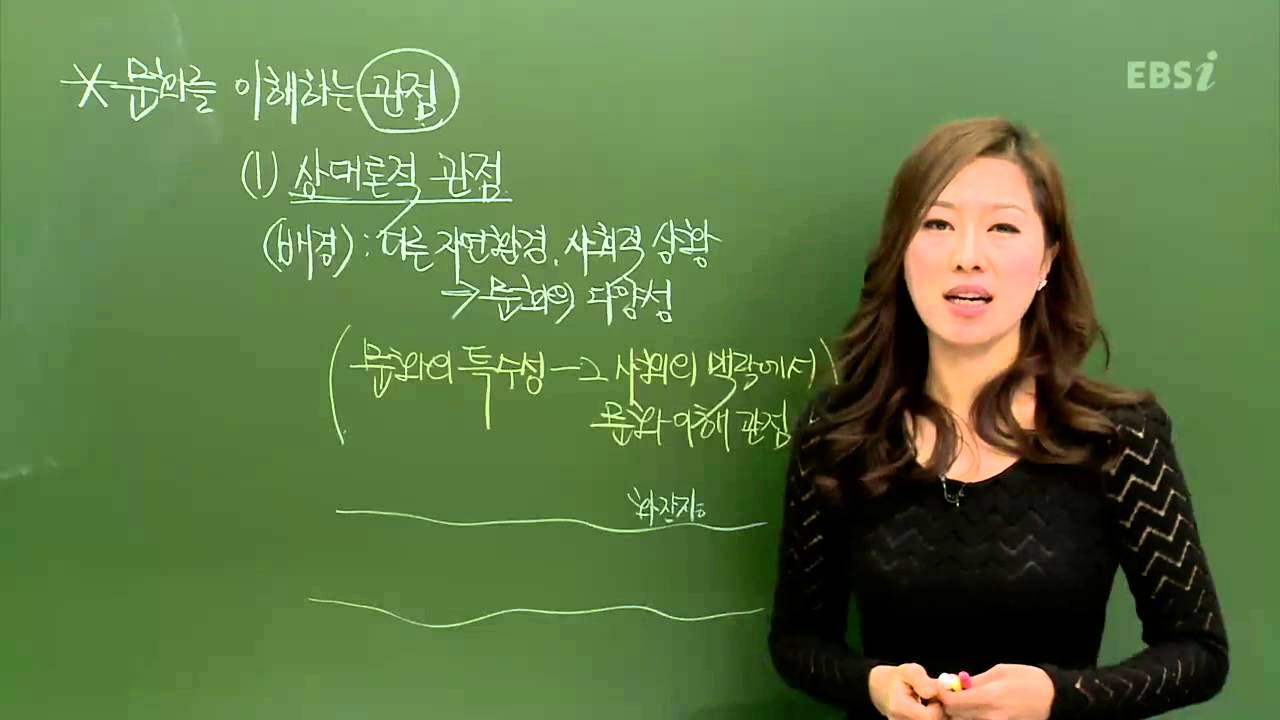 * 문화를 이해하는 관점
EBSi
(1) 상대론적 관점
(배경) : 다른 자연환경, 사회적 상황
→ 문화의 다양성
(문화의 특수성 - 그 사회의 맥락에서)
문화 이해 관점
화장지